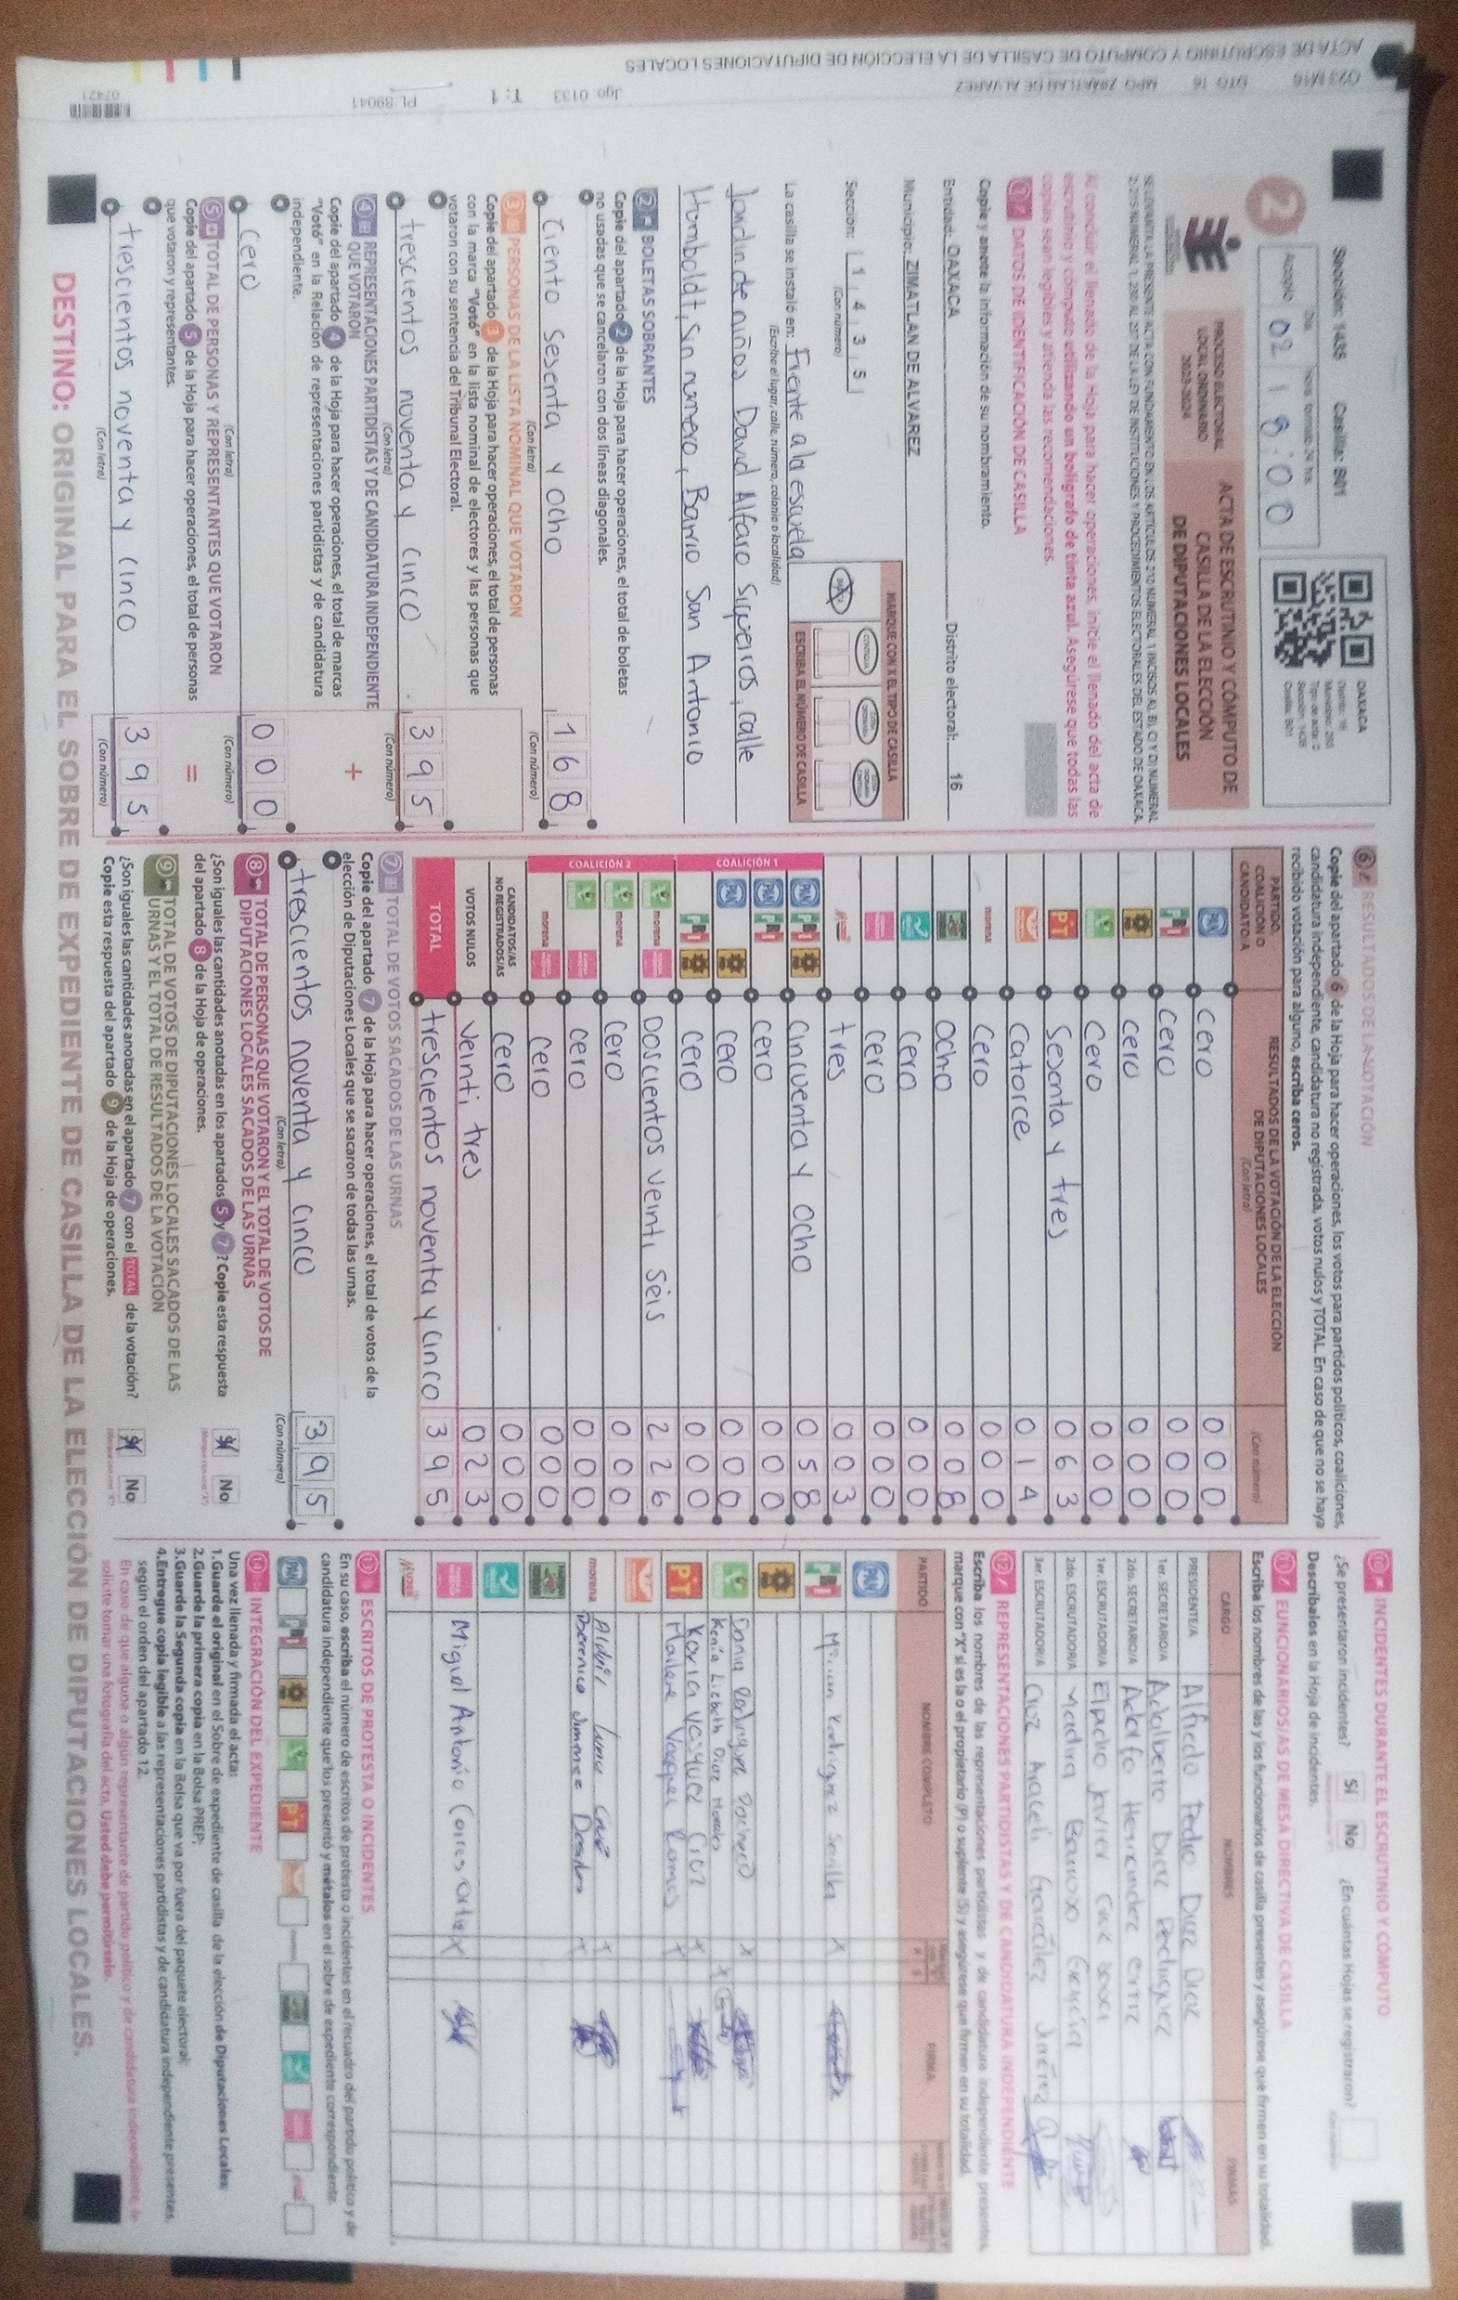 ACTA DE ESCRUTINIO Y CÓMPUTO DE CASILLA DE LA ELECCIÓN DE DIPUTACIONES LOCALES
DTO 16 MPO ZIMATLAN DE ALVAREZ
Jgo. 0133 T: 1 PL 89041
07421
Sección: 1435 Casilla: B01
2
ACOPIO 02 18:00
OAXACA
PROCESO ELECTORAL
LOCAL ORDINARIO
2023-2024
ACTA DE ESCRUTINIO Y CÓMPUTO DE
CASILLA DE LA ELECCIÓN
DE DIPUTACIONES LOCALES
Al concluir el llenado de la Hoja para hacer operaciones, inicie el llenado del acta de
escrutinio y cómputo utilizando un bolígrafo de tinta azul. Asegúrese que todas las
copias sean legibles y atienda las recomendaciones.
1 DATOS DE IDENTIFICACIÓN DE CASILLA
Copie y anote la información de su nombramiento.
Entidad: OAXACA Distrito electoral: 16
Municipio: ZIMATLAN DE ALVAREZ
Sección: 1 4 3 5
(Con número)
MARQUE CON X EL TIPO DE CASILLA
ESCRIBA EL NÚMERO DE CASILLA
La casilla se instaló en: Frente a la escuela
(Escriba el lugar, calle, número, colonia o localidad)
Jardin de niños David Alfaro Siqueiros, calle
Homboldt, sin número, Barrio San Antonio
2 BOLETAS SOBRANTES
Copie del apartado 2 de la Hoja para hacer operaciones, el total de boletas
no usadas que se cancelaron con dos líneas diagonales.
Ciento sesenta y ocho 168
(Con letra) (Con número)
3 PERSONAS DE LA LISTA NOMINAL QUE VOTARON
Copie del apartado 3 de la Hoja para hacer operaciones, el total de personas
con la marca "Votó" en la lista nominal de electores y las personas que
votaron con su sentencia del Tribunal Electoral.
trescientos noventa y cinco 395
(Con letra) (Con número)
4 REPRESENTACIONES PARTIDISTAS Y DE CANDIDATURA INDEPENDIENTE
QUE VOTARON
Copie del apartado 4 de la Hoja para hacer operaciones, el total de marcas
"Votó" en la Relación de representaciones partidistas y de candidatura
independiente.
+
Cero 000
(Con letra) (Con número)
5 TOTAL DE PERSONAS Y REPRESENTANTES QUE VOTARON
Copie del apartado 5 de la Hoja para hacer operaciones, el total de personas
que votaron y representantes.
=
trescientos noventa y cinco 395
(Con letra) (Con número)
6 RESULTADOS DE LA VOTACIÓN
Copie del apartado 6 de la Hoja para hacer operaciones, los votos para partidos políticos, coaliciones,
candidatura independiente, candidatura no registrada, votos nulos y TOTAL. En caso de que no se haya
recibido votación para alguno, escriba ceros.
PARTIDO, COALICIÓN O CANDIDATO/A
RESULTADOS DE LA VOTACIÓN DE LA ELECCIÓN DE DIPUTACIONES LOCALES
(Con letra) (Con número)
PAN Cero 000
PRI Cero 000
Cero 000
Cero 000
PT Sesenta y tres 063
Catorce 014
morena Cero 000
Ocho 008
Cero 000
Cero 000
tres 003
COALICIÓN 1
PAN PRI Cincuenta y ocho 058
PAN PRI Cero 000
PAN Cero 000
PRI Cero 000
COALICIÓN 2
morena Doscientos veinti seis 226
morena Cero 000
Cero 000
morena Cero 000
CANDIDATOS/AS NO REGISTRADOS/AS Cero 000
VOTOS NULOS Veinti tres 023
TOTAL trescientos noventa y cinco 395
7 TOTAL DE VOTOS SACADOS DE LAS URNAS
Copie del apartado 7 de la Hoja para hacer operaciones, el total de votos de la
elección de Diputaciones Locales que se sacaron de todas las urnas.
trescientos noventa y cinco 395
(Con letra) (Con número)
8 TOTAL DE PERSONAS QUE VOTARON Y EL TOTAL DE VOTOS DE
DIPUTACIONES LOCALES SACADOS DE LAS URNAS
¿Son iguales las cantidades anotadas en los apartados 5 y 7? Copie esta respuesta
del apartado 8 de la Hoja de operaciones.
Sí No
9 TOTAL DE VOTOS DE DIPUTACIONES LOCALES SACADOS DE LAS
URNAS Y EL TOTAL DE RESULTADOS DE LA VOTACIÓN
¿Son iguales las cantidades anotadas en el apartado 7 con el TOTAL de la votación?
Copie esta respuesta del apartado 9 de la Hoja de operaciones.
Sí No
10 INCIDENTES DURANTE EL ESCRUTINIO Y CÓMPUTO
¿Se presentaron incidentes? Sí No ¿En cuántas Hojas se registraron?
Descríbalos en la Hoja de incidentes.
11 FUNCIONARIOS/AS DE MESA DIRECTIVA DE CASILLA
Escriba los nombres de las y los funcionarios de casilla presentes y asegúrese que firmen en su totalidad.
CARGO NOMBRES FIRMAS
PRESIDENTE/A Alfredo Pedro Diaz Diaz
1er. SECRETARIO/A Adalberto Diaz Rodriguez
2do. SECRETARIO/A Adolfo Hernandez
1er. ESCRUTADOR/A Javier
2do. ESCRUTADOR/A Yadira Barroso Garcia
3er. ESCRUTADOR/A Cruz Araceli Gonzalez
12 REPRESENTACIONES PARTIDISTAS Y DE CANDIDATURA INDEPENDIENTE
Escriba los nombres de las representaciones partidistas y de candidatura independiente presentes,
marque con "X" si es la o el propietario (P) o suplente (S) y asegúrese que firmen en su totalidad.
PARTIDO NOMBRE COMPLETO FIRMA
PAN
PRI Miriam Rodriguez Sevilla X
Dania Rodriguez X
Kenia Lizbeth Diaz Morales X
PT Karina Vasquez Cruz X
Vasquez Ramos X
morena X
Berenice Jimenez X
Miguel Antonio X
13 ESCRITOS DE PROTESTA O INCIDENTES
En su caso, escriba el número de escritos de protesta o incidentes en el recuadro del partido político y de
candidatura independiente que los presentó y métalos en el sobre de expediente correspondiente.
14 INTEGRACIÓN DEL EXPEDIENTE
Una vez llenada y firmada el acta:
1. Guarde el original en el Sobre de expediente de casilla de la elección de Diputaciones Locales;
2. Guarde la primera copia en la Bolsa PREP;
3. Guarde la Segunda copia en la Bolsa que va por fuera del paquete electoral;
4. Entregue copia legible a las representaciones partidistas y de candidatura independiente presentes,
según el orden del apartado 12.
En caso de que alguna o algún representante de partido político y de candidatura independiente, le
solicite tomar una fotografía del acta, Usted debe permitírselo.
DESTINO: ORIGINAL PARA EL SOBRE DE EXPEDIENTE DE CASILLA DE LA ELECCIÓN DE DIPUTACIONES LOCALES.